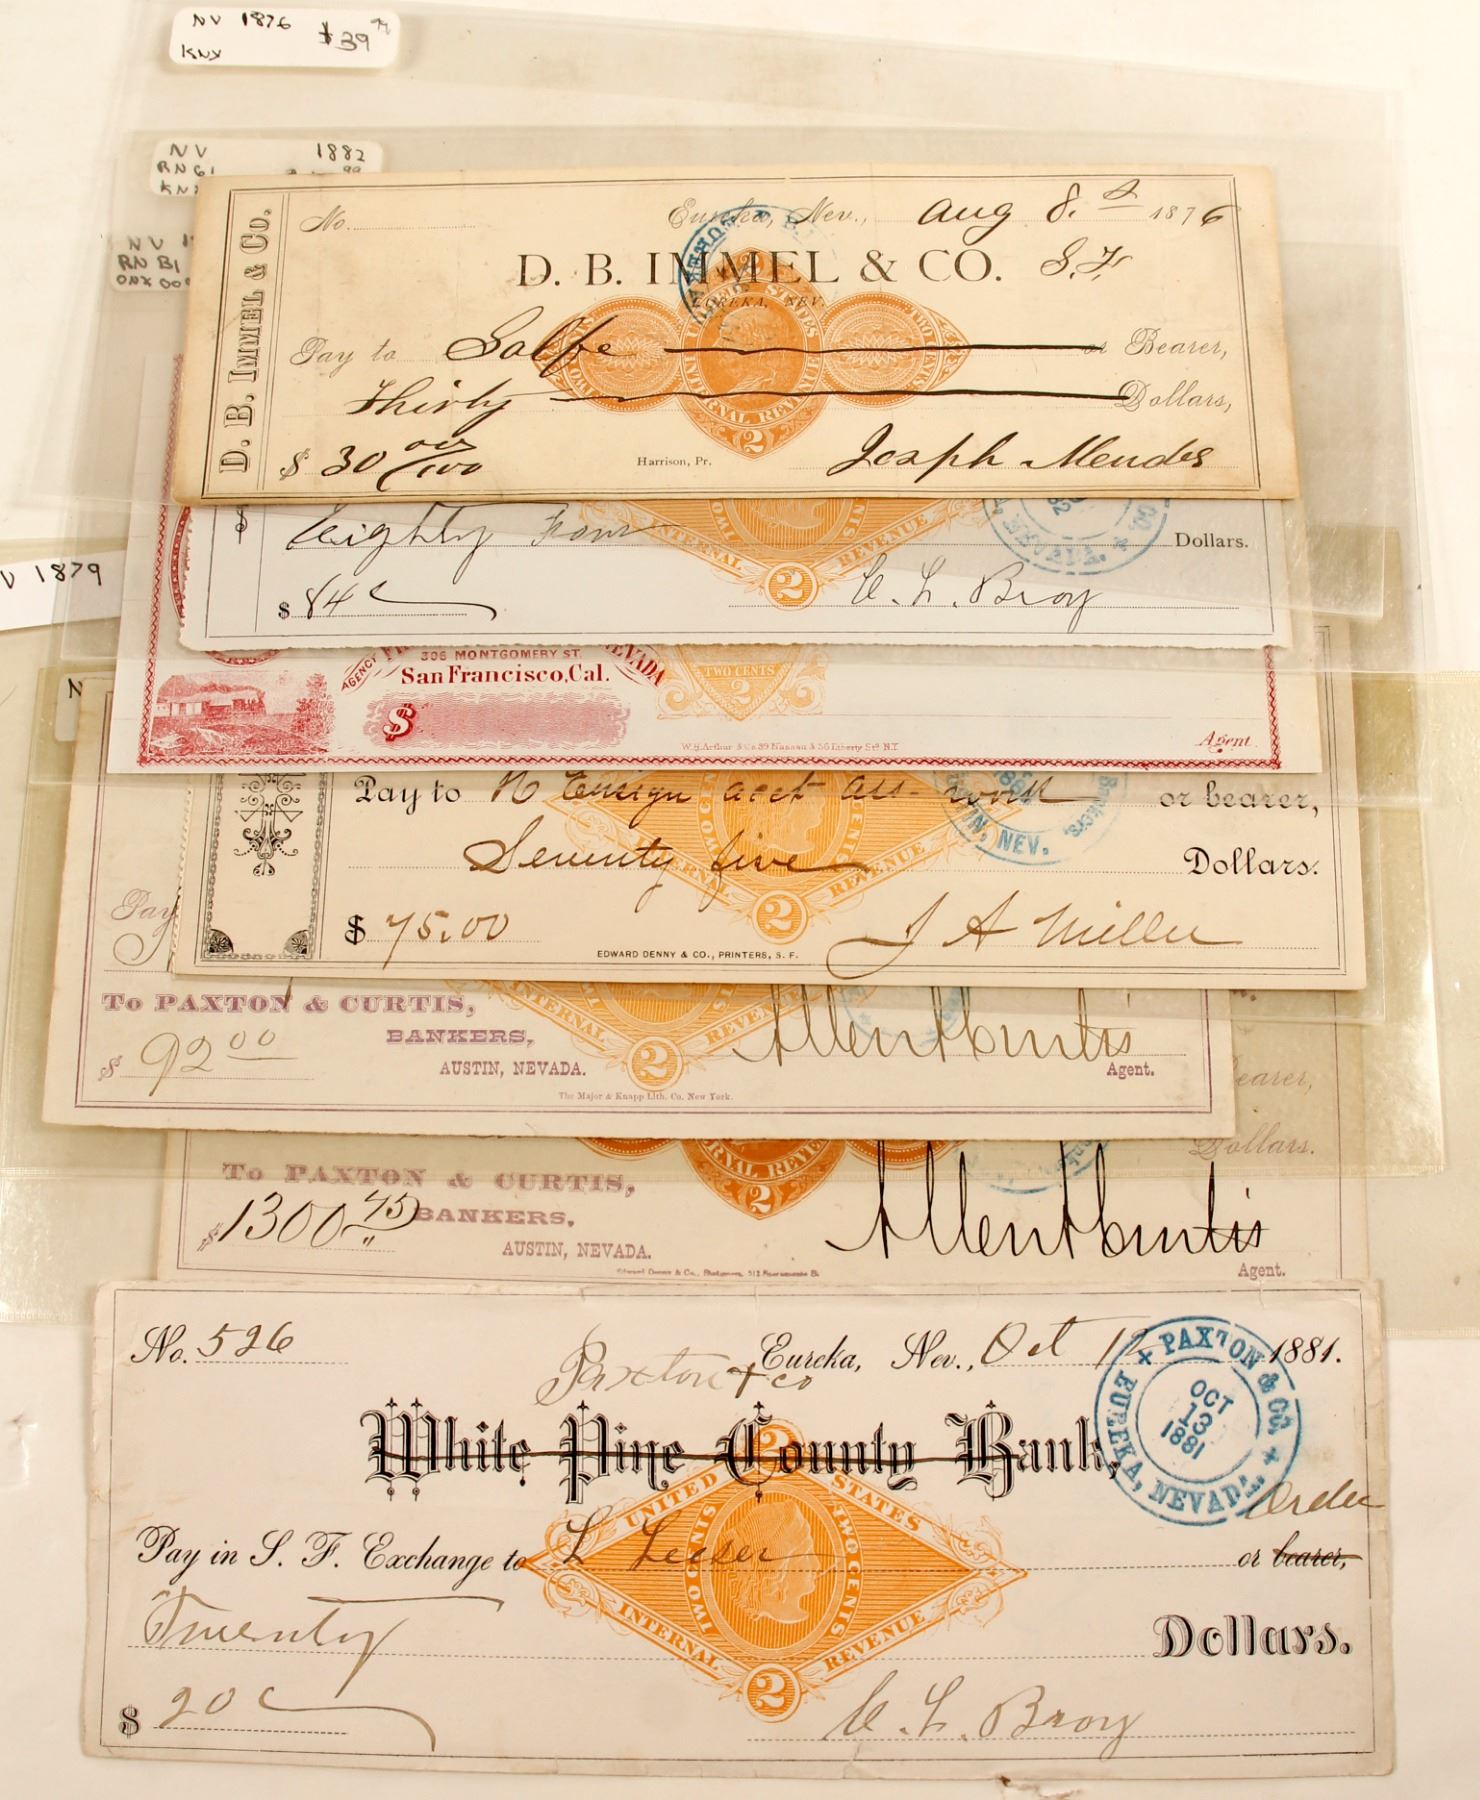 NV 1876 $39 99
KNX
NV 1882
RN G1
NV
RN B1
V 1879
N
D. B. IMMEL & Co.
No.
Eureka, Nev., Aug 8. 1876
D. B. IMMEL & CO. S.F.
EUREKA, NEV.
UNITED STATES
INTERNAL REVENUE
2
Pay to Self or Bearer,
Thirty Dollars,
$ 30 00/100
Harrison, Pr.
Joseph Mendes
Eighty Four Dollars.
INTERNAL REVENUE
2
NEVADA.
$ 84
C. L. Broy
AGENCY
306 MONTGOMERY ST.
NEVADA
San Francisco, Cal.
TWO CENTS
2
$
W. H. Arthur & Co. 39 Nassau & 56 Liberty Sts N.Y.
Agent
Pay to N Ensign acct ass. work or bearer,
Bankers,
NEV.
Seventy five Dollars.
TWO CENTS
REVENUE
2
$ 75.00
J A Miller
EDWARD DENNY & CO., PRINTERS, S. F.
Pay
To PAXTON & CURTIS,
BANKERS,
AUSTIN, NEVADA.
$ 92 00
INTERNAL REVENUE
2
Allen A Curtis
Agent.
The Major & Knapp Lith. Co. New York.
earer,
Dollars.
To PAXTON & CURTIS,
BANKERS,
AUSTIN, NEVADA.
$ 1300 45
2
Allen A Curtis
Agent.
No. 526
Eureka, Nev., Oct 12 1881.
Paxton & Co
White Pine County Bank,
PAXTON & CO.
OCT
13
1881
EUREKA, NEVADA.
Order
UNITED STATES
TWO CENTS
TWO CENTS
Pay in S. F. Exchange to L Leeser or bearer,
INTERNAL REVENUE
2
Twenty Dollars.
$ 20
C. L. Broy